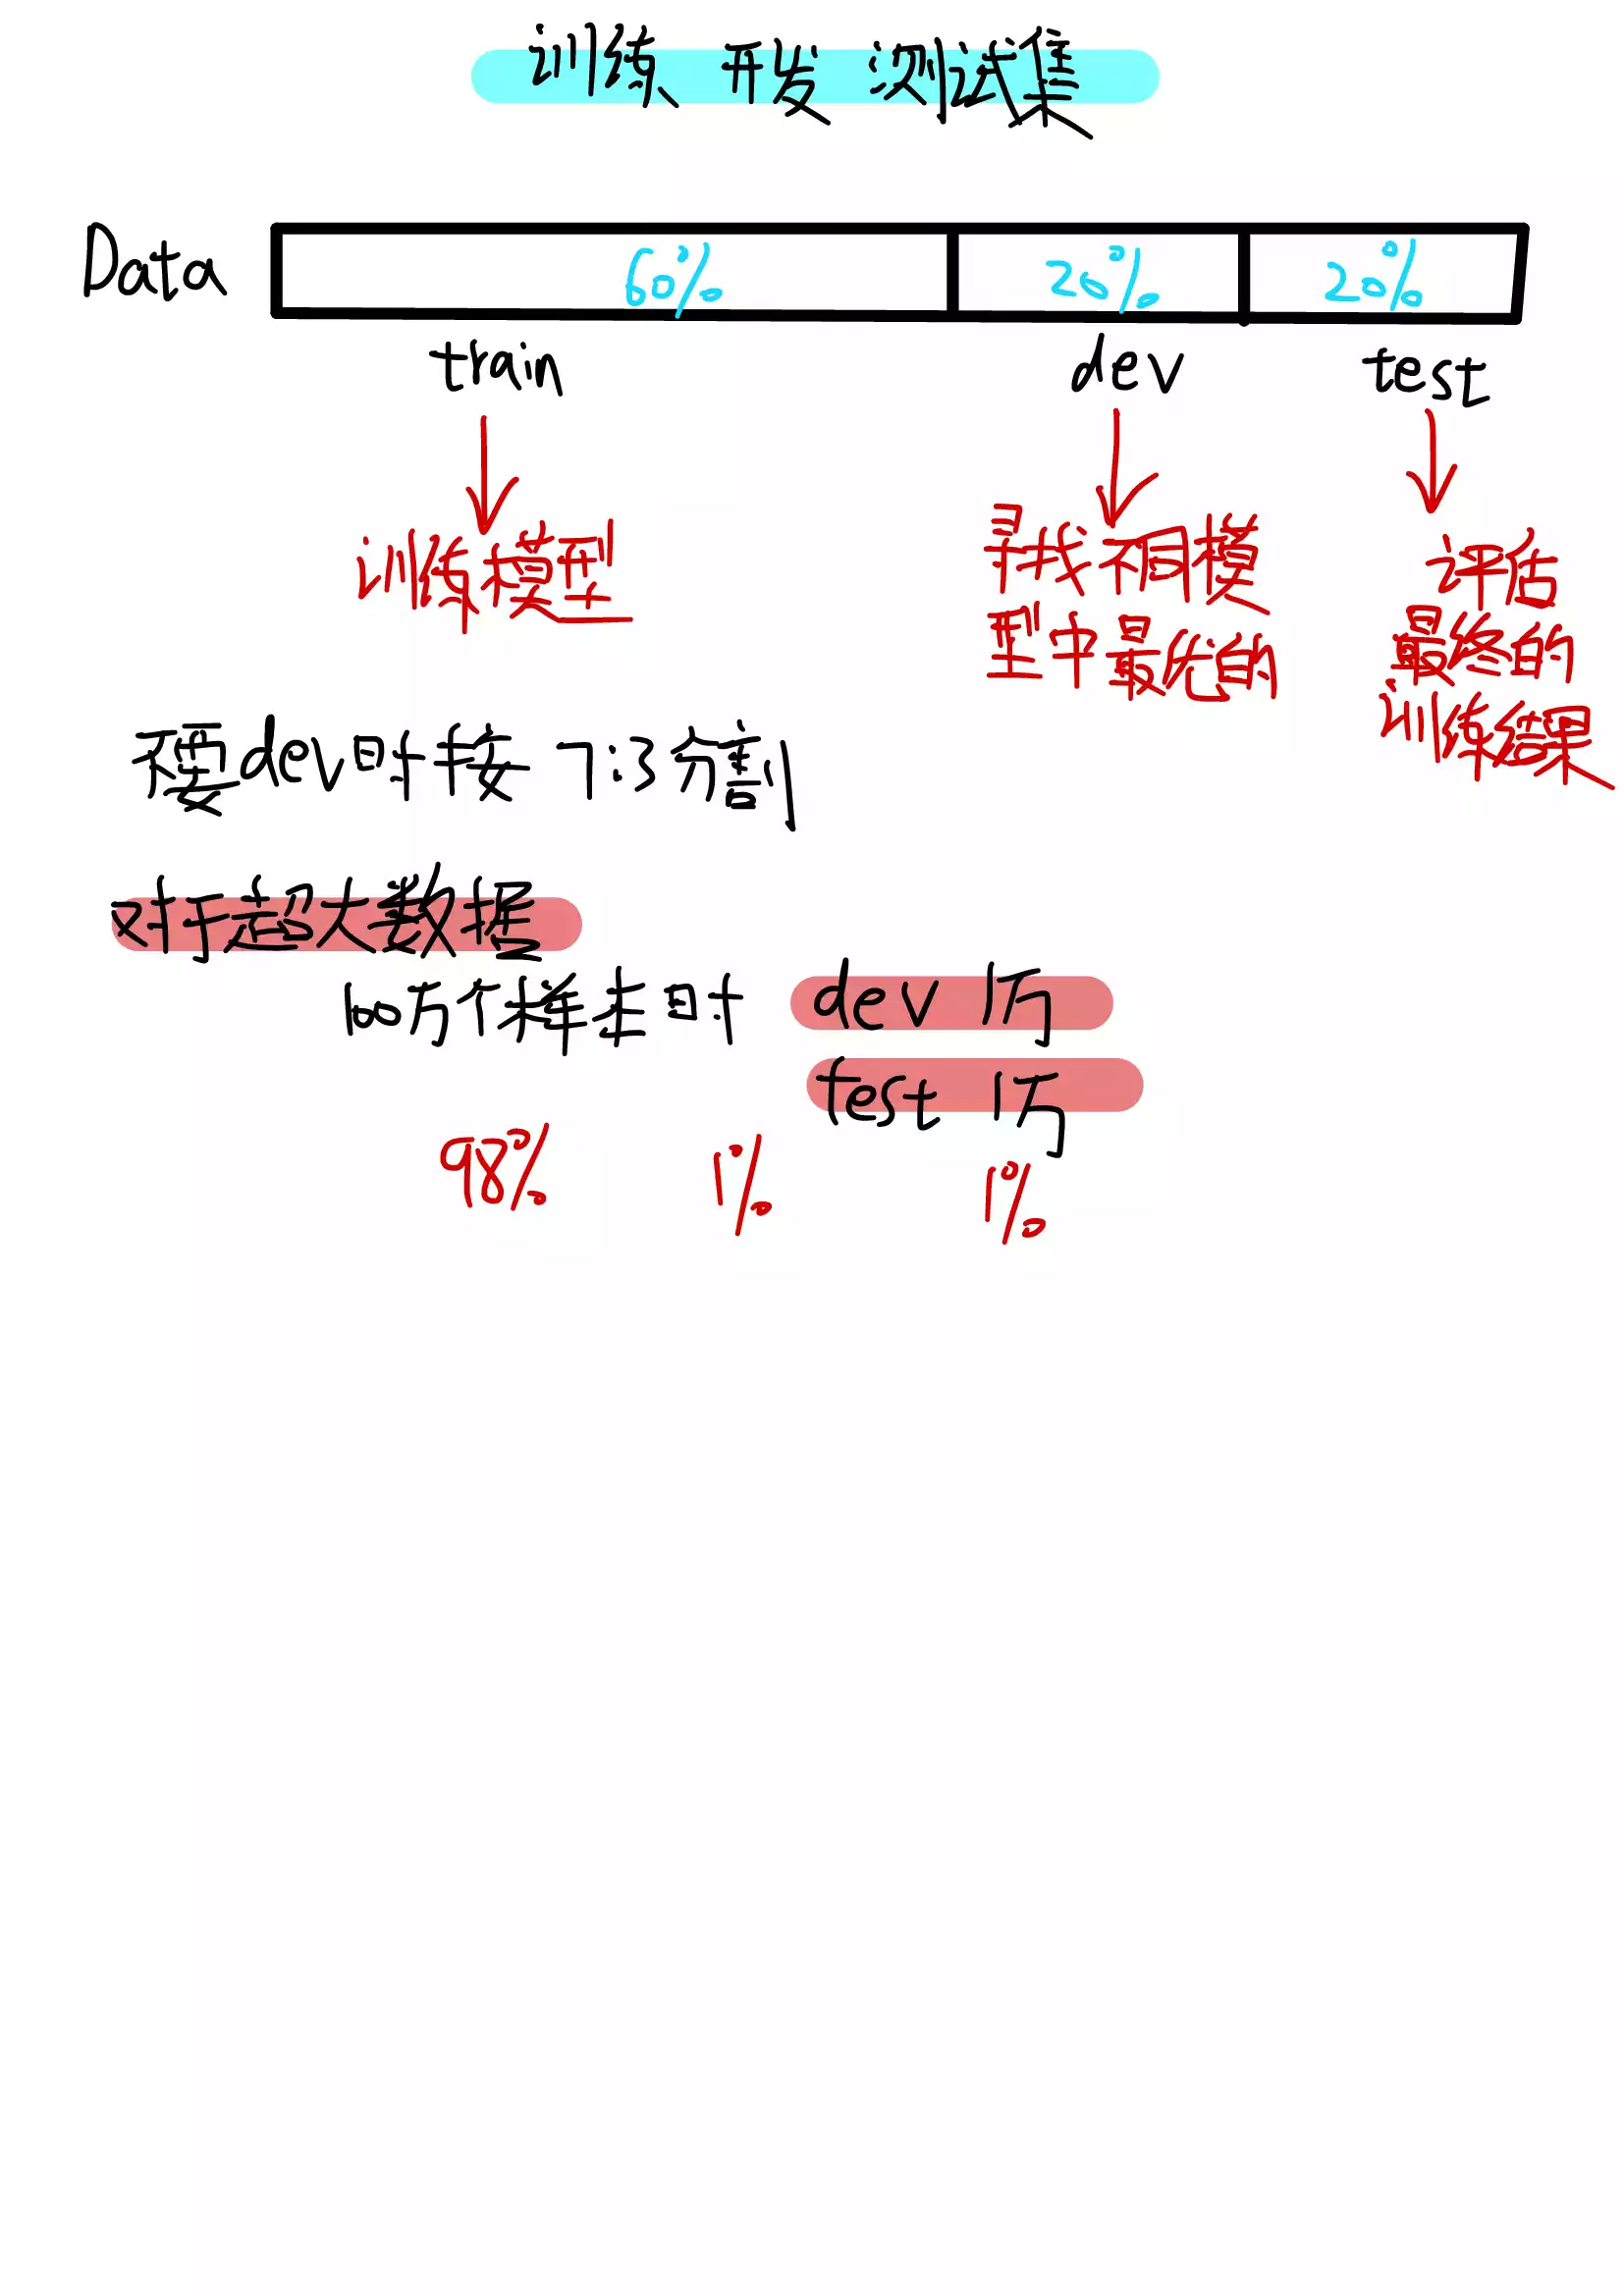 训练 开发 测试集
Data 60% 20% 20%
train dev test
训练模型
寻找不同模
型中最优的
评估
最终的
训练结果
不要dev时按 7:3分割
对于超大数据
100万个样本时 dev 1万
test 1万
98% 1% 1%